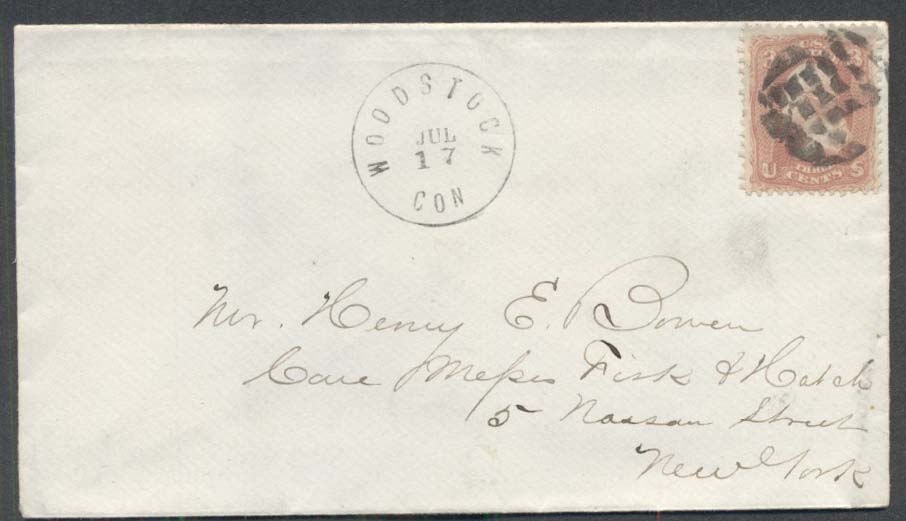 WOODSTOCK
JUL
17
CON
U S
CENTS
Mr. Henry E. Bowen
Care Messrs Fisk & Hatch
5 Nassau Street
New York